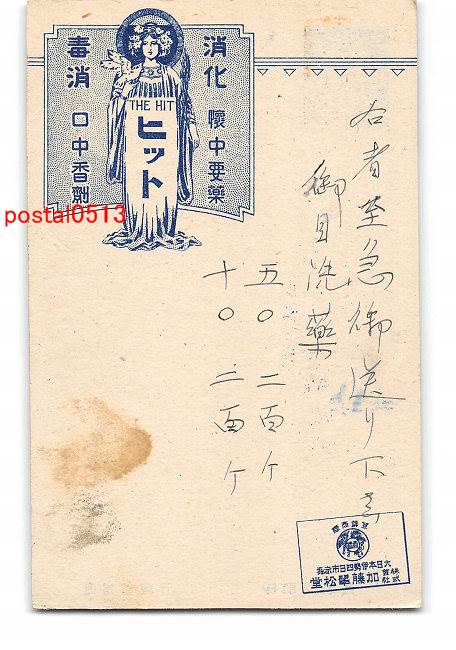 消化 懐中要薬
THE HIT
ヒット
毒消 口中香剤
postal0513
右者至急御送り下さい
御目洗薬
五〇 二百ケ
十〇 二百ケ
大日本伊勢四日市京町
株式会社
加藤翠松堂